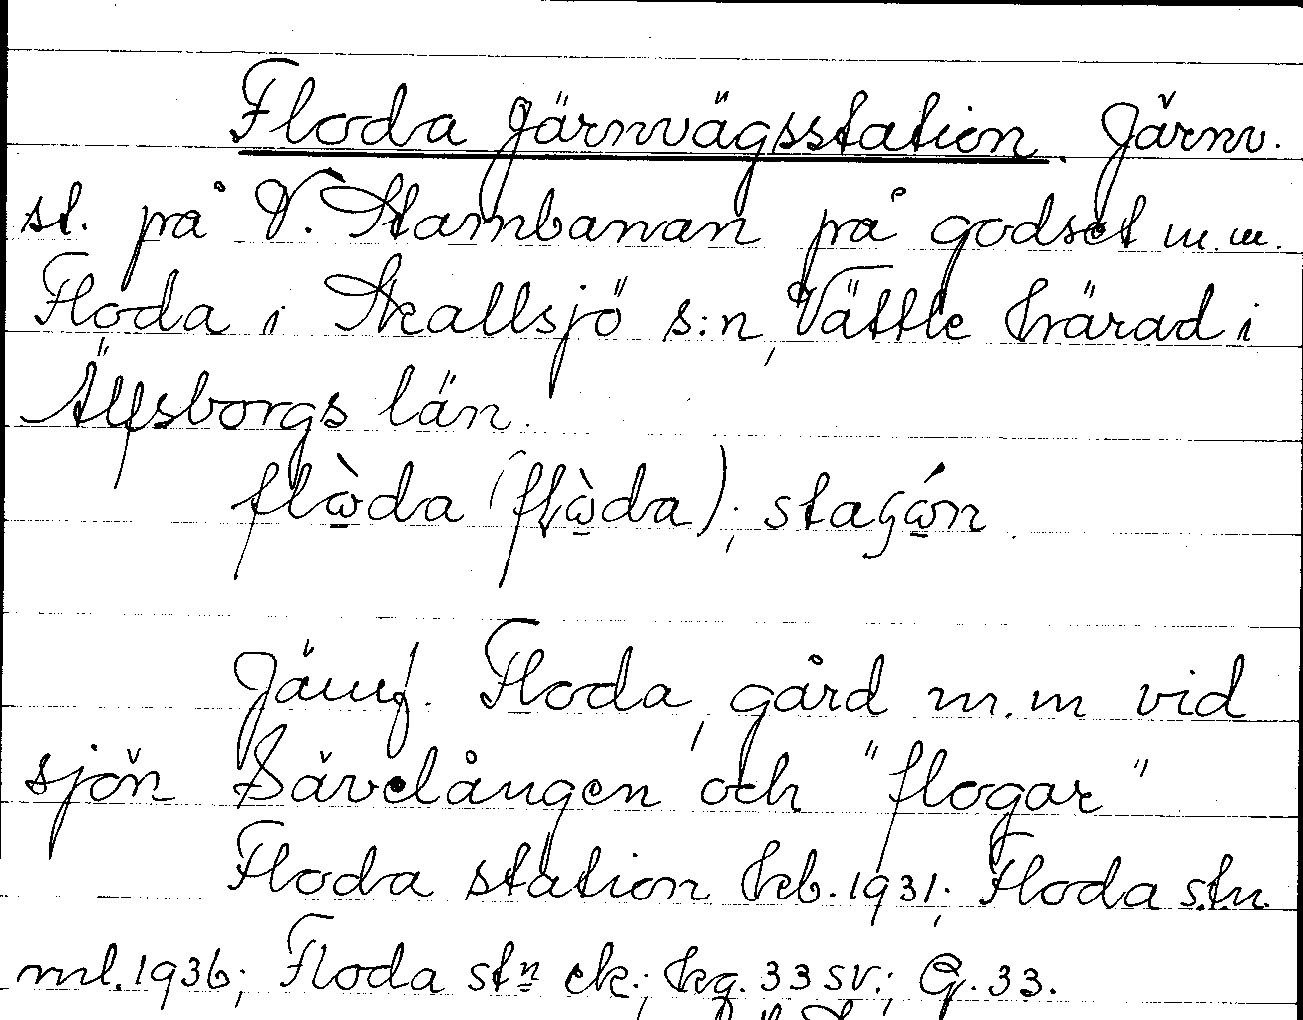 Floda Järnvägsstation. Järnv.
st. på V. Stambanan på godset m.m.
Floda i Skallsjö s:n, Vättle härad i
Älfsborgs län.
flὼ̱da (flὼ̱da); staʂώ̱n
Jämf. Floda, gård m.m vid
sjön Sävelången och "flogar"
Floda station kb. 1931; Floda stn.
ml. 1936; Floda stn ek.; kg. 33 SV.; G. 33.